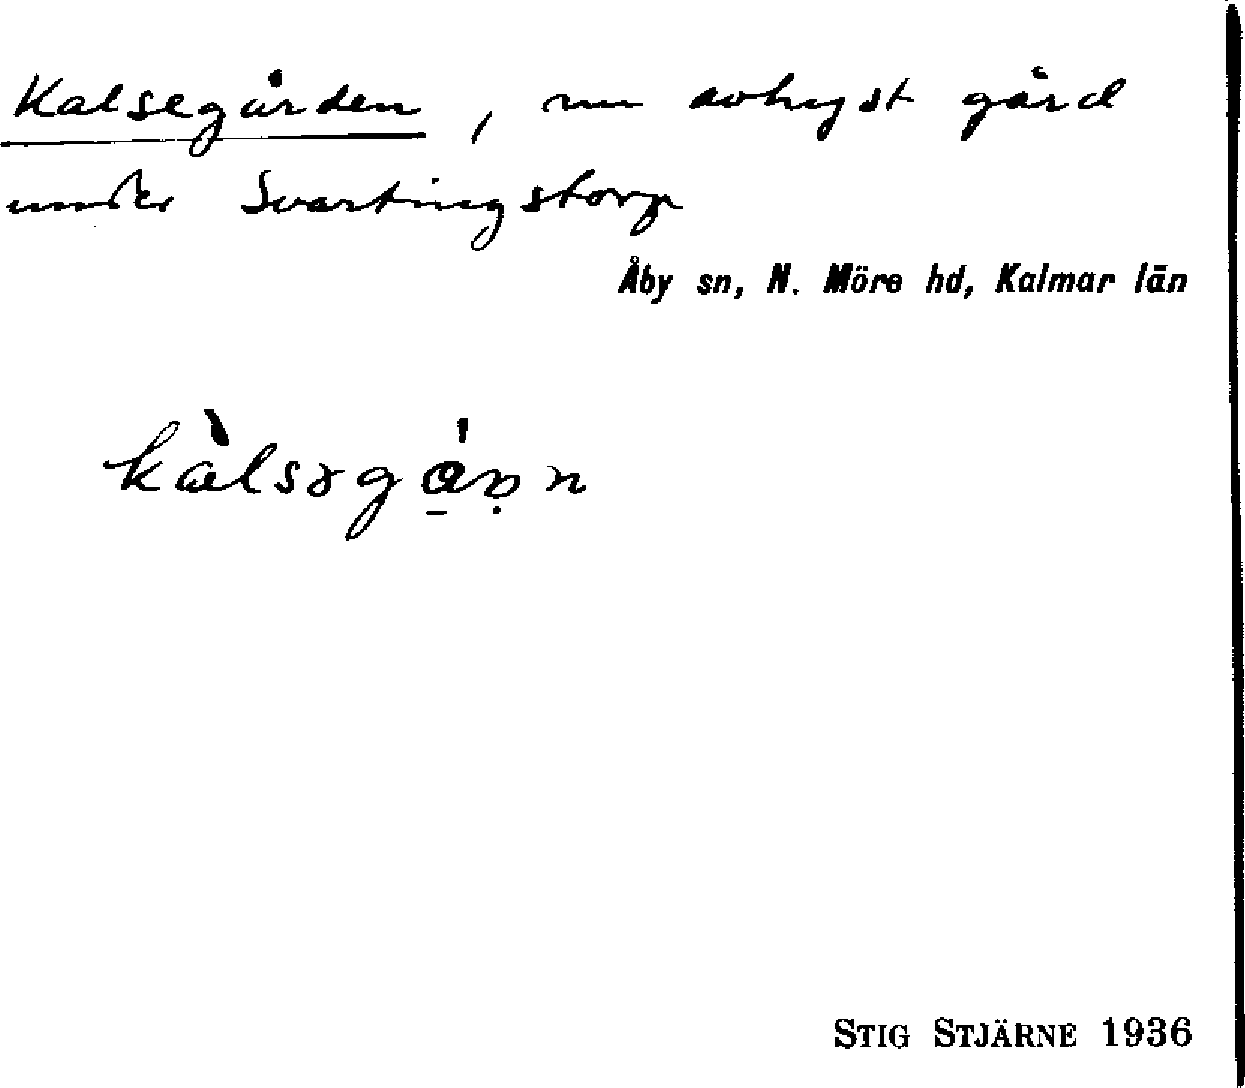 Kalsegården, nu avhyst gård
under Svartingstorp
Åby sn, N. Möre hd, Kalmar län
STIG STJÄRNE 1936